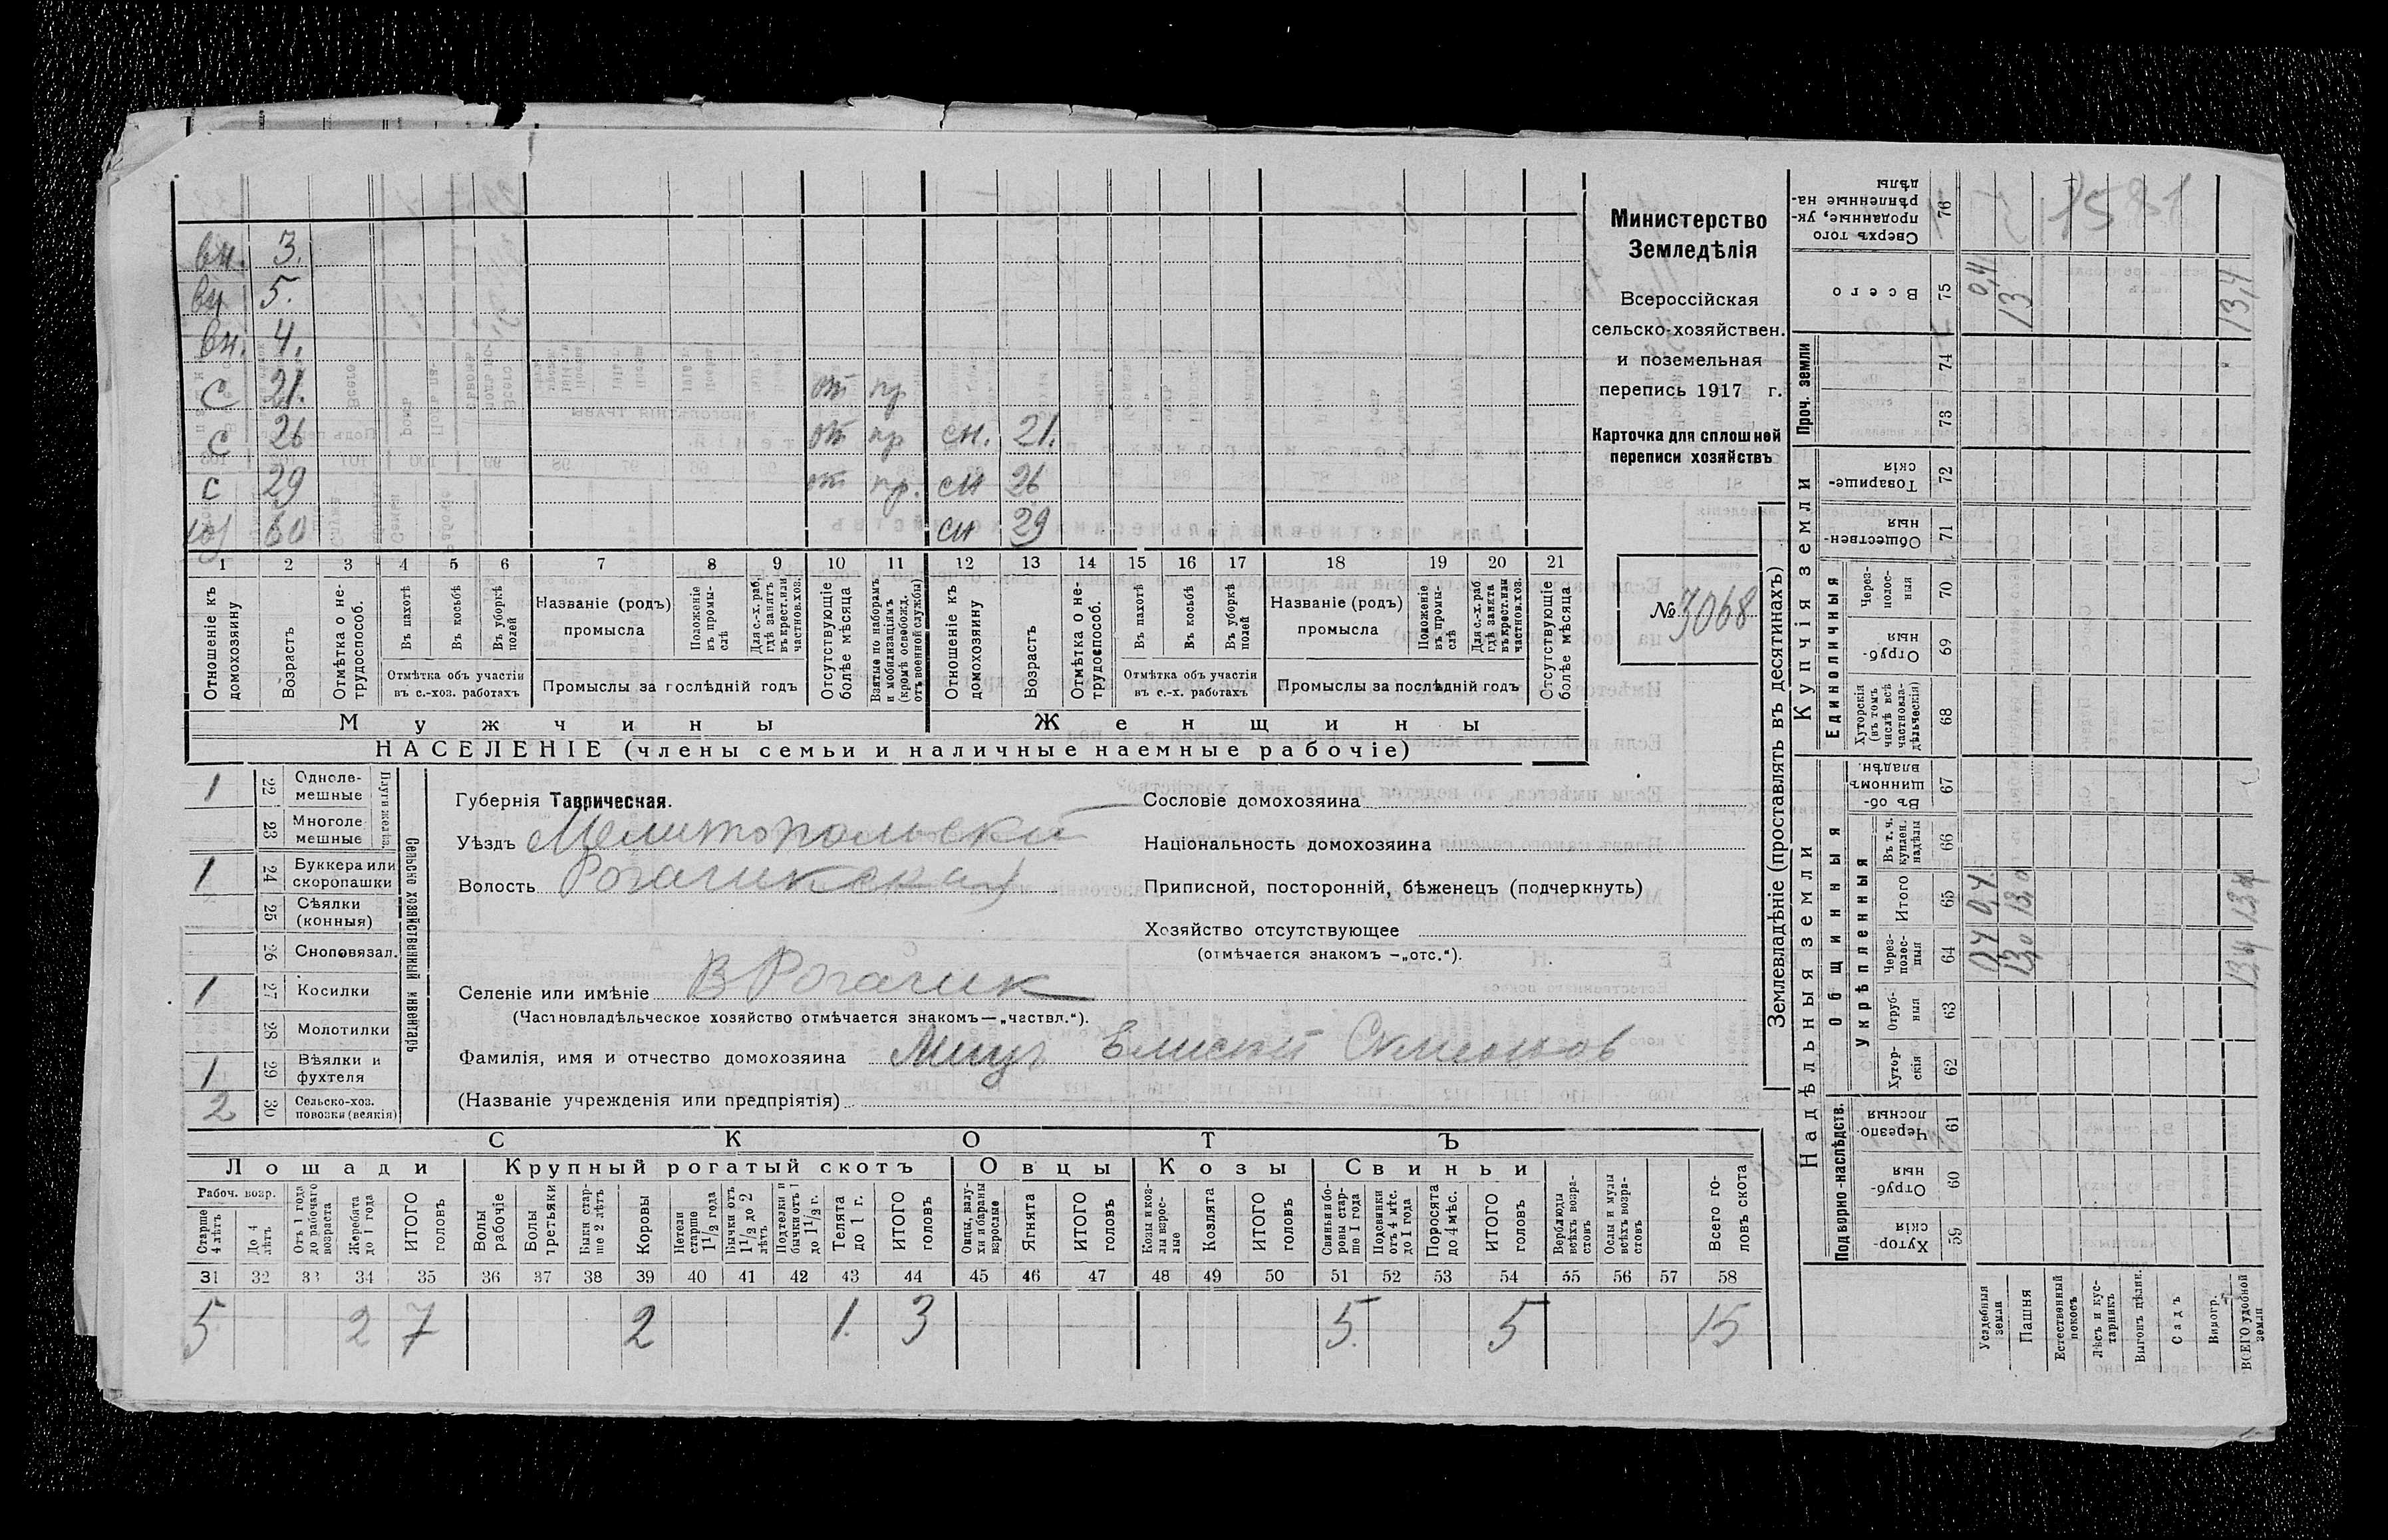 вн. 3.
вн 5.
вн. 4.
с 21. от пр
с 26 от пр сн. 21.
с 29 от пр. сн 26
60 сн 29
1 2 3 4 5 6 7 8 9 10 11 12 13 14 15 16 17 18 19 20 21
Отношеніе къ домохозяину
Возрастъ
Отмѣтка о не-трудоспособ.
Въ пахотѣ
Въ косьбѣ
Въ уборкѣ полей
Отмѣтка объ участіи въ с.-хоз. работахъ
Названіе (родъ) промысла
Положеніе въ промы-слѣ
Для с.-х. раб. гдѣ занятъ въ крест. или частнов. хоз.
Промыслы за послѣдній годъ
Отсутствующіе болѣе мѣсяца
Взятые по наборамъ и мобилизаціямъ (кромѣ освобожд. отъ военной службы)
Отношеніе къ домохозяину
Возрастъ
Отмѣтка о не-трудоспособ.
Въ пахотѣ
Въ косьбѣ
Въ уборкѣ полей
Отмѣтка объ участіи въ с.-х. работахъ
Названіе (родъ) промысла
Положеніе въ промы-слѣ
Для с.-х. раб. гдѣ занята въ крест. или частнов. хоз.
Промыслы за послѣдній годъ
Отсутствующіе болѣе мѣсяца
Мужчины Женщины
НАСЕЛЕНІЕ (члены семьи и наличные наемные рабочіе)
Министерство
Земледѣлія
Всероссійская
сельско-хозяйствен.
и поземельная
перепись 1917 г.
Карточка для сплошной
переписи хозяйствъ
№ 3068
Сельско хозяйственный инвентарь
Плуги желѣз.
1 22 Одноле-мешные
23 Многоле мешные
1 24 Буккера или скоропашки
25 Сѣялки (конныя)
26 Сноповязал.
1 27 Косилки
28 Молотилки
1 29 Вѣялки и фухтеля
2 30 Сельско-хоз. повозки (всякія)
Губернія Таврическая.
Уѣздъ Мелитопольскій
Волость Рогачикская
Селеніе или имѣніе В Рогачик
(Частновладѣльческое хозяйство отмѣчается знакомъ—„частвл.“).
Фамилія, имя и отчество домохозяина
(Названіе учрежденія или предпріятія)
Сословіе домохозяина
Національность домохозяина
Приписной, посторонній, бѣженецъ (подчеркнуть)
Хозяйство отсутствующее
(отмѣчается знакомъ —„отс.“).
СКОТЪ
Лошади Крупный рогатый скотъ Овцы Козы Свиньи
Рабоч. возр.
Старше 4 лѣтъ
До 4 лѣтъ
Отъ 1 года до рабочаго возраста
Жеребята до 1 года
ИТОГО головъ
Волы рабочіе
Волы третьяки
Быки стар-ше 2 лѣтъ
Коровы
Нетели старше 1½ года
Бычки отъ 1½ до 2 лѣтъ
Подтелки и бычки отъ 1 до 1½ г.
Телята до 1 г.
ИТОГО головъ
Овцы, валу-хи и бараны взрослые
Ягнята
ИТОГО головъ
Козы и коз-лы взрос-лые
Козлята
ИТОГО головъ
Свиньи и бо-ровы стар-ше 1 года
Подсвинки отъ 4 мѣс. до 1 года
Поросята до 4 мѣс.
ИТОГО головъ
Верблюды всѣхъ возра-стовъ
Ослы и мулы всѣхъ возра-стовъ
Всего го-ловъ скота
31 32 33 34 35 36 37 38 39 40 41 42 43 44 45 46 47 48 49 50 51 52 53 54 55 56 57 58
5 2 7 2 1. 3 5. 5 15
Землевладѣніе (проставлять въ десятинахъ)
Надѣльныя земли
Купчія земли
Проч. земли
Подворно-наслѣдств.
Общинныя
Укрѣпленныя
Единоличныя
Хутор-скія 59
Отруб-ныя 60
Черезпо-лосныя 61
Хутор-скія 62
Отруб-ныя 63
Через-полос-ныя 64 0,4 13,0 13,4
Итого 65 0,4. 13,0 13,4
Въ т. ч. куплен. надѣлы 66
Въ об-щинномъ владѣн. 67
Хуторскія (въ томъ числѣ всѣ частновла-дѣльческія) 68
Отруб-ныя 69
Через-полос-ныя 70
Обществен-ныя 71
Товарище-скія 72
73
74
Всего 75 0,4 13 13,4
Сверхъ того проданные, ук-рѣпленные на-дѣлы 76
Усадебныя земли
Пашня
Естественный покосъ
Лѣсъ и кус-тарникъ
Выгонъ цѣлин.
Садъ
Виногр.
ВСЕГО удобной земли